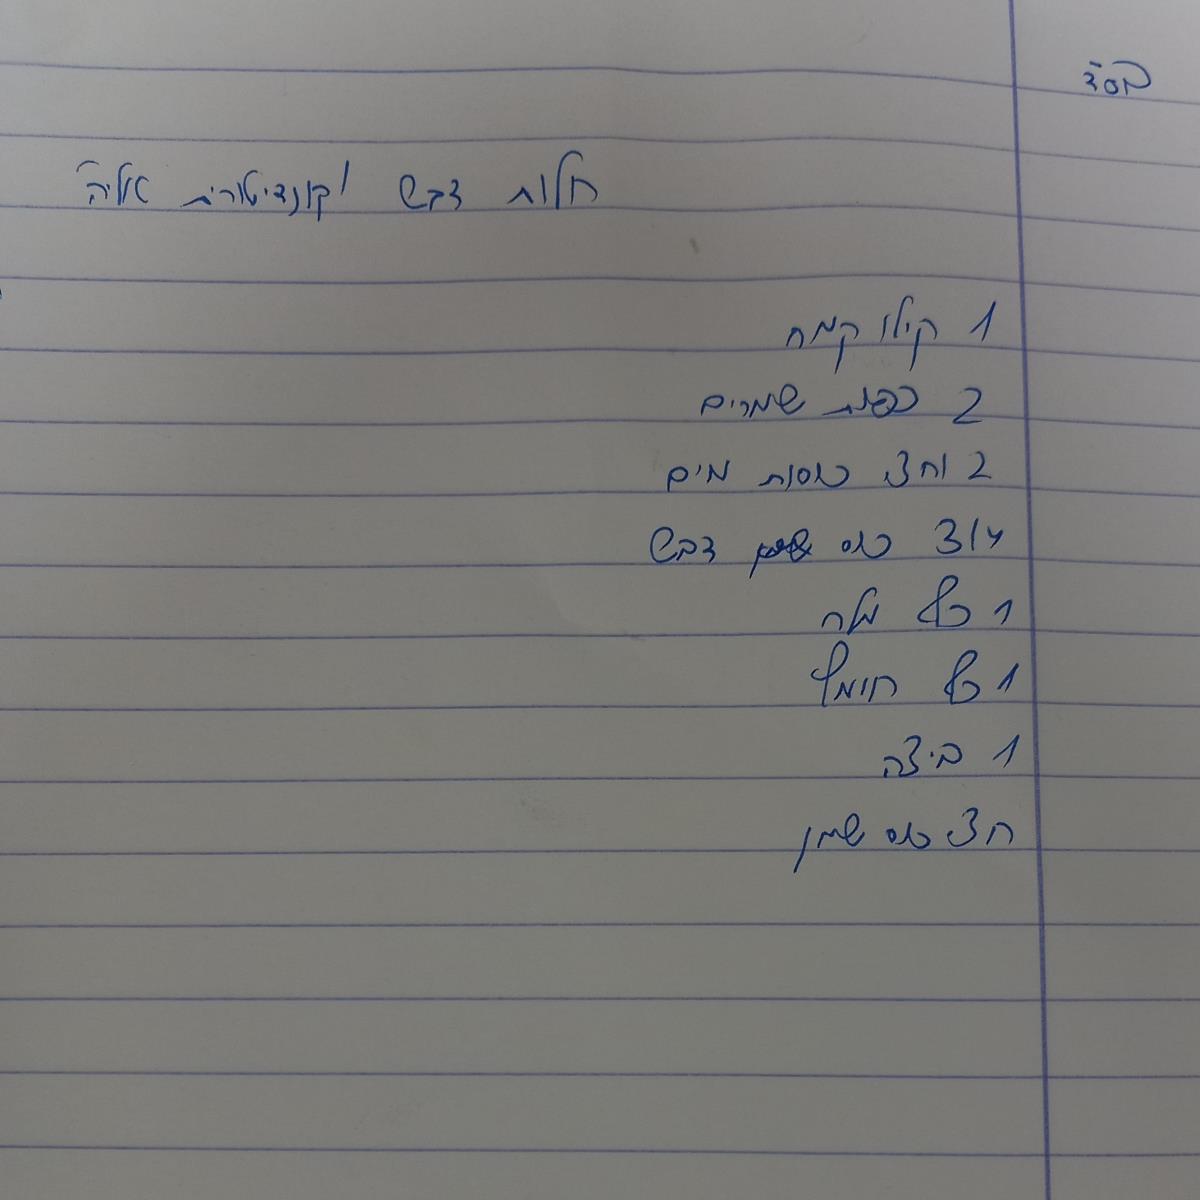 בסד
חלות דבש / קונדיטורית אליה
1 קילו קמח
2 כפות שמרים
2 וחצי כוסות מים
3/4 כוס דבש
1 כף מלח
1 כף חומץ
1 ביצה
חצי כוס שמן